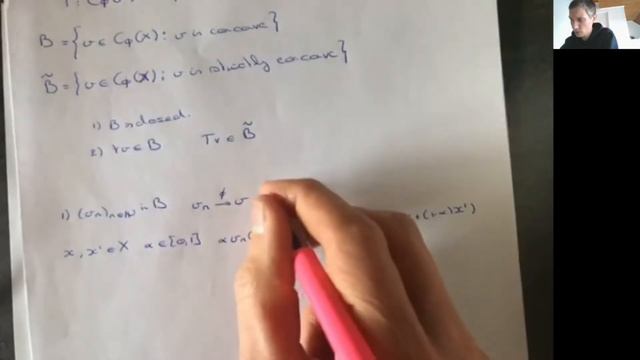 B = {v ∈ Cφ(X) : v is concave}
B̃ = {v ∈ Cφ(X) : v is strictly concave}
1) B is closed.
2) ∀v ∈ B Tv ∈ B̃
1) (vn)n∈ℕ in B vn →φ v
x, x' ∈ X α ∈ [0,1] α vn( +(1-α)x')